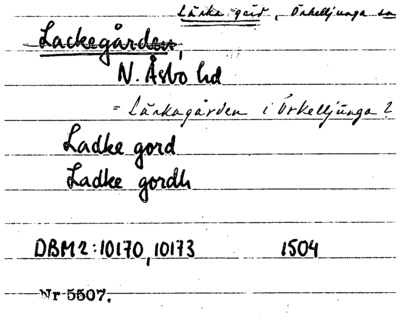 Lärkegård, Örkelljunga sn
Lackegården,
N. Åsbo hd
= Lärkagården i Örkelljunga?
Ladke gord
Ladke gordh
DBM2:10170, 10173 1504
Nr 5507.